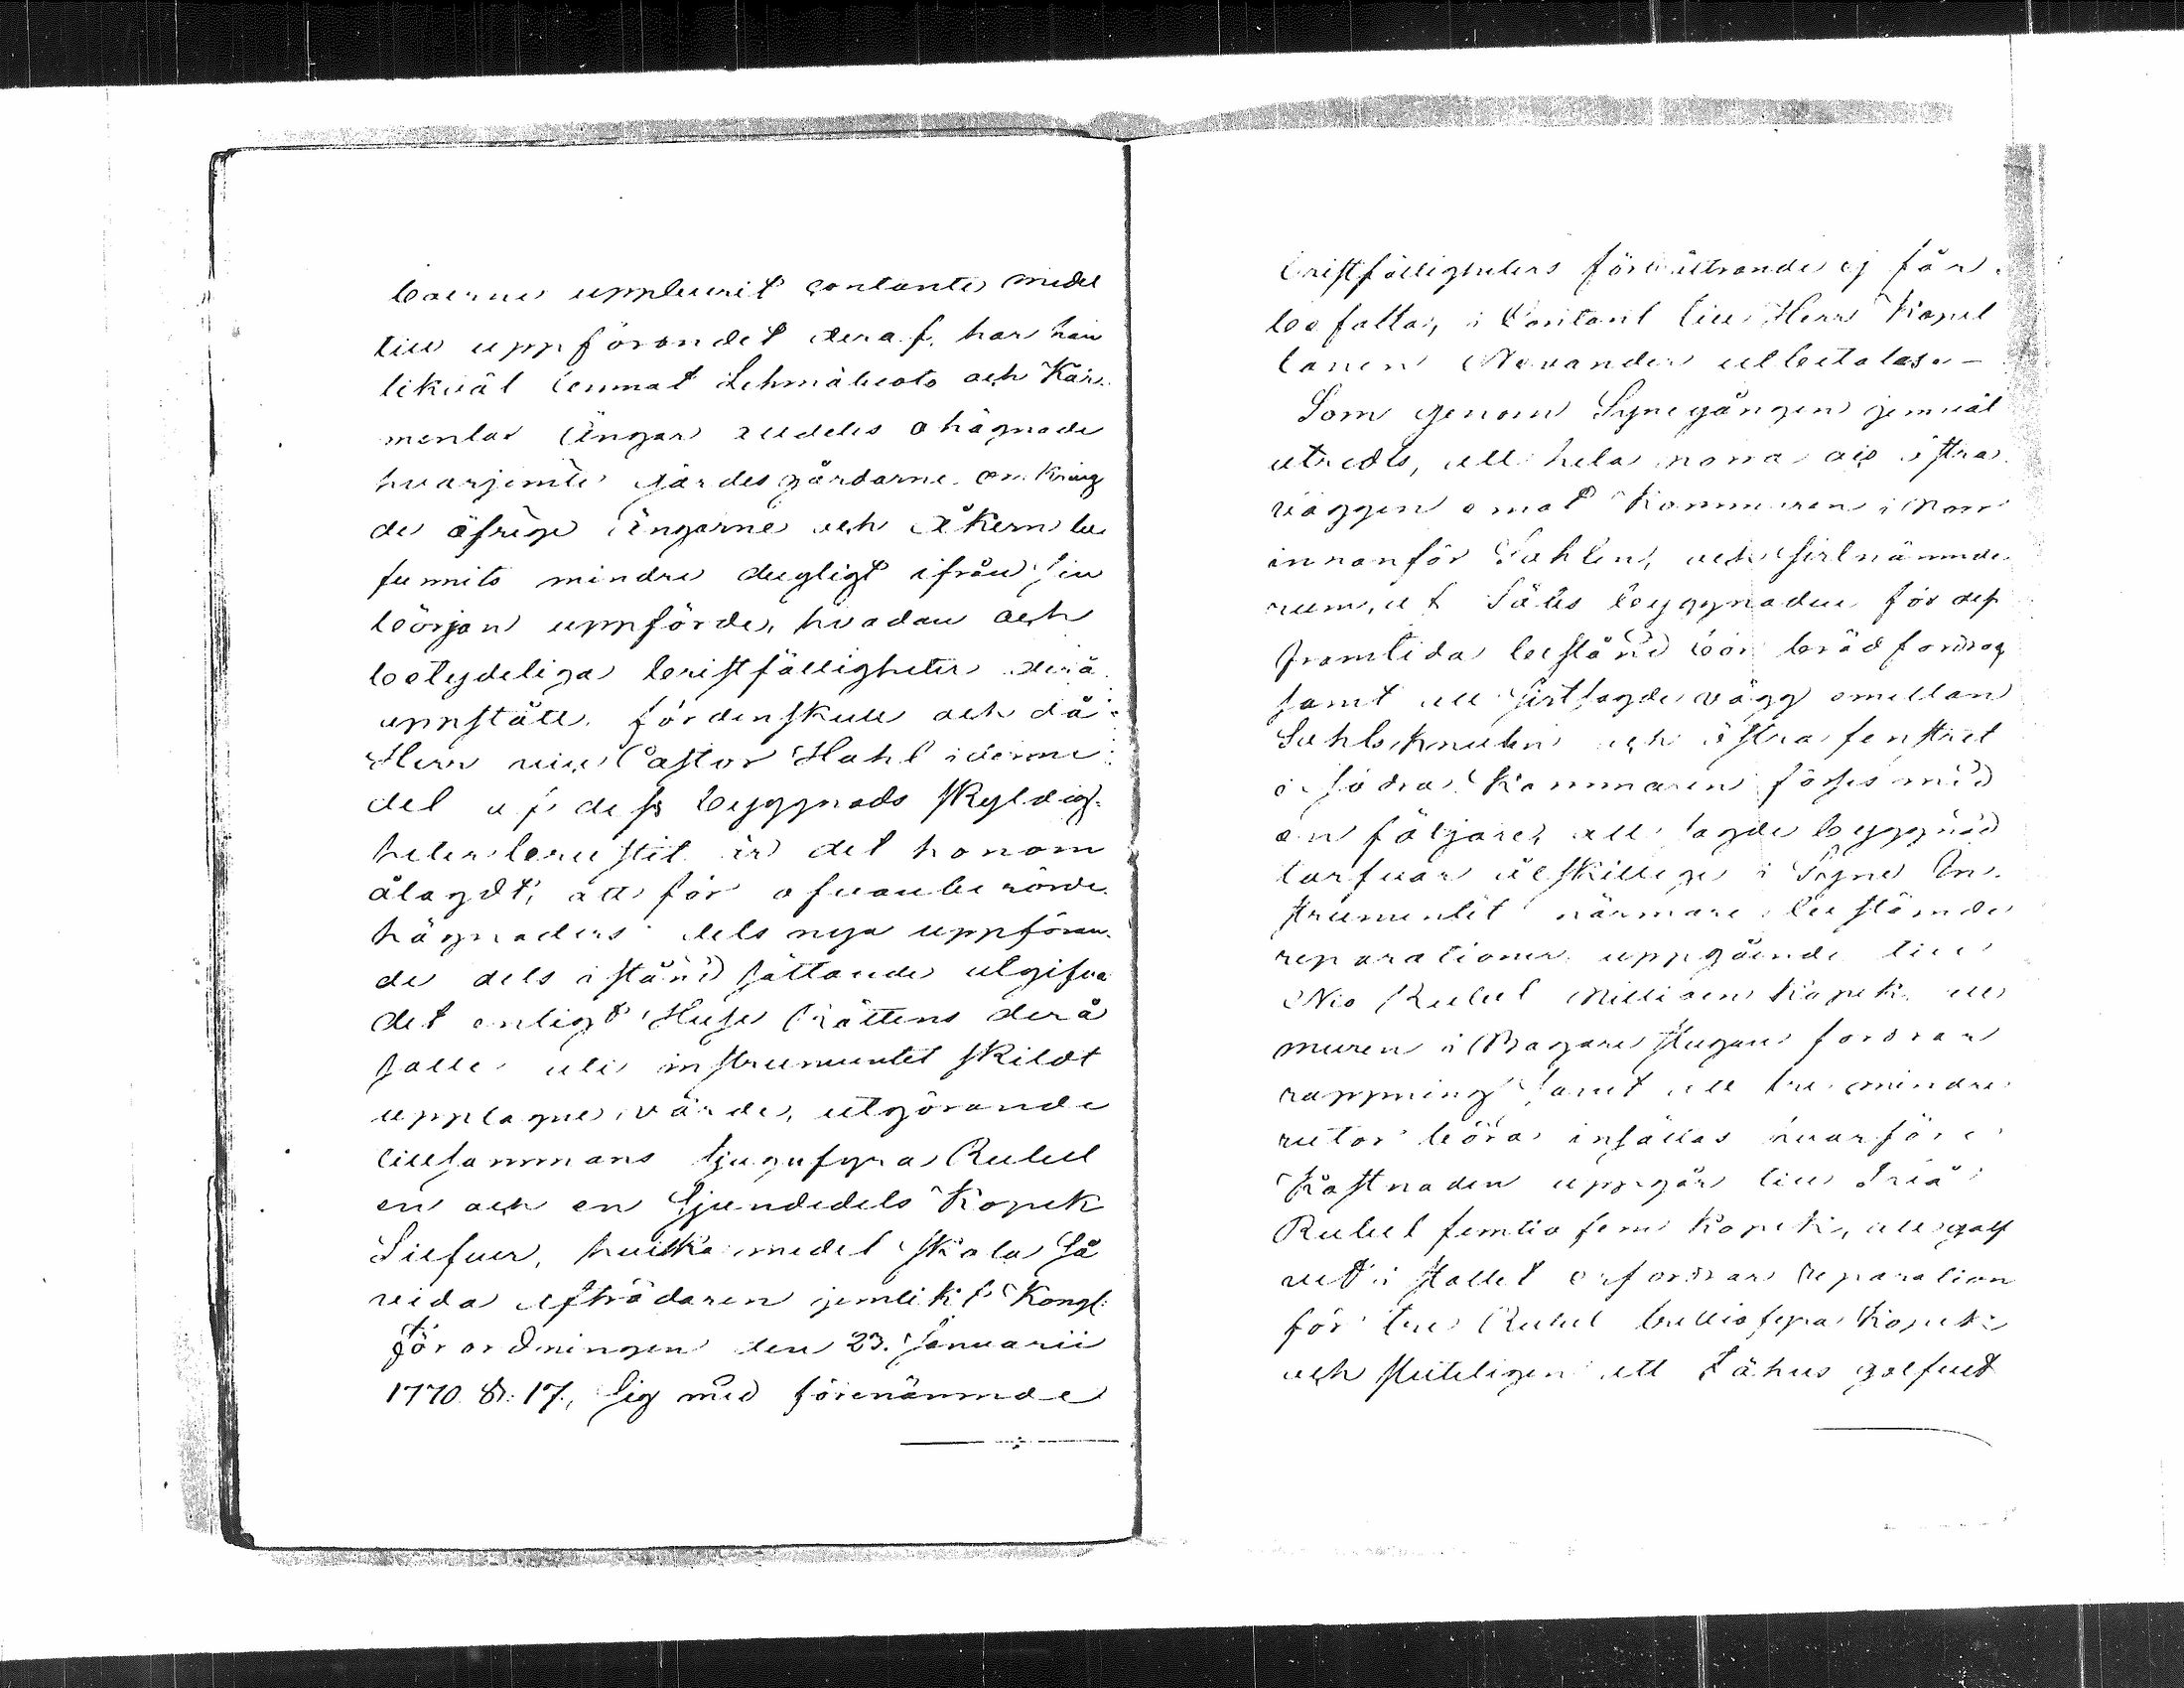 boerne uppburit contante medel
till uppförandet deraf, har han
likväl lemnat Lehmäluoto och Kär-
menlax Ängar alldeles ohägnade
hvarjemte gärdesgårdarne omkring
de öfrige Ängarne och Åkern be
funnits mindre dugligt ifrån sin
början uppförde, hvadan och
betydeliga bristfälligheter derå
uppstått, fördenskull och då
Herr vice Pastor Hahl i denne
del af dess byggnads skyldig-
heter brustit är det honom
ålagdt, att för ofvanberörde
hägnaders dels nya uppföran-
de dels i stånd sättande utgifva
det enligt Husesyns Rättens derå
salle uti instrumentet skildt
upptagne värde, utgörande
tillsammans tjugufyra Rubel
en och en sjundedels Kopek
Silfver, hvilka medel skola så
vida afträdaren jemlikt Kongl:
förordningen den 23. Januarii
1770 §. 17, sig med förenämnde
bristfälligheters förbättrande ej får
befatta, i Contant till Herr Kapel
lanen Nevander utbetalas. –
Som genom Synegången jemväl
utredts, att hela norra och östra
väggen omot Kammaren i norr
innanför Sahlen, och sistnämnde
rum, af Sätes byggnaden för dess
framtida bestånd bör brädfordras
samt att sistsagde vägg emellan
Sahls knuten och östra fenstret
i södra Kammaren förses med
en följare, att sagde byggnad
tarfvar åtskillige i Syne In-
strumentet närmare bestämde
reparationer uppgående till
Nio Rubel Nittioen Kopek, att
muren i Bagarestugan fordrar
rappning samt att tre mindre
rutor böra insättas hvarföre
Kostnaden uppgår till Två
Rubel femtio fem Kopek, att golf
vet i stallet erfordrar reparation
för tre Rubel trettiofyra Kopek
och sluteligen att Fähus golfvet